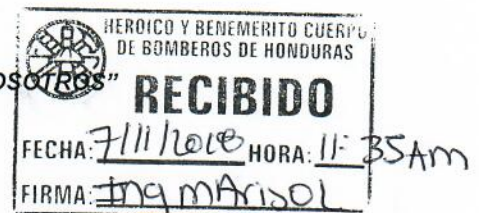 HEROICO Y BENEMERITO CUERPO
DE BOMBEROS DE HONDURAS
OSOTROS"
RECIBIDO
FECHA: 7/11/2018 HORA: 11:35 Am
FIRMA: Ing mArisol